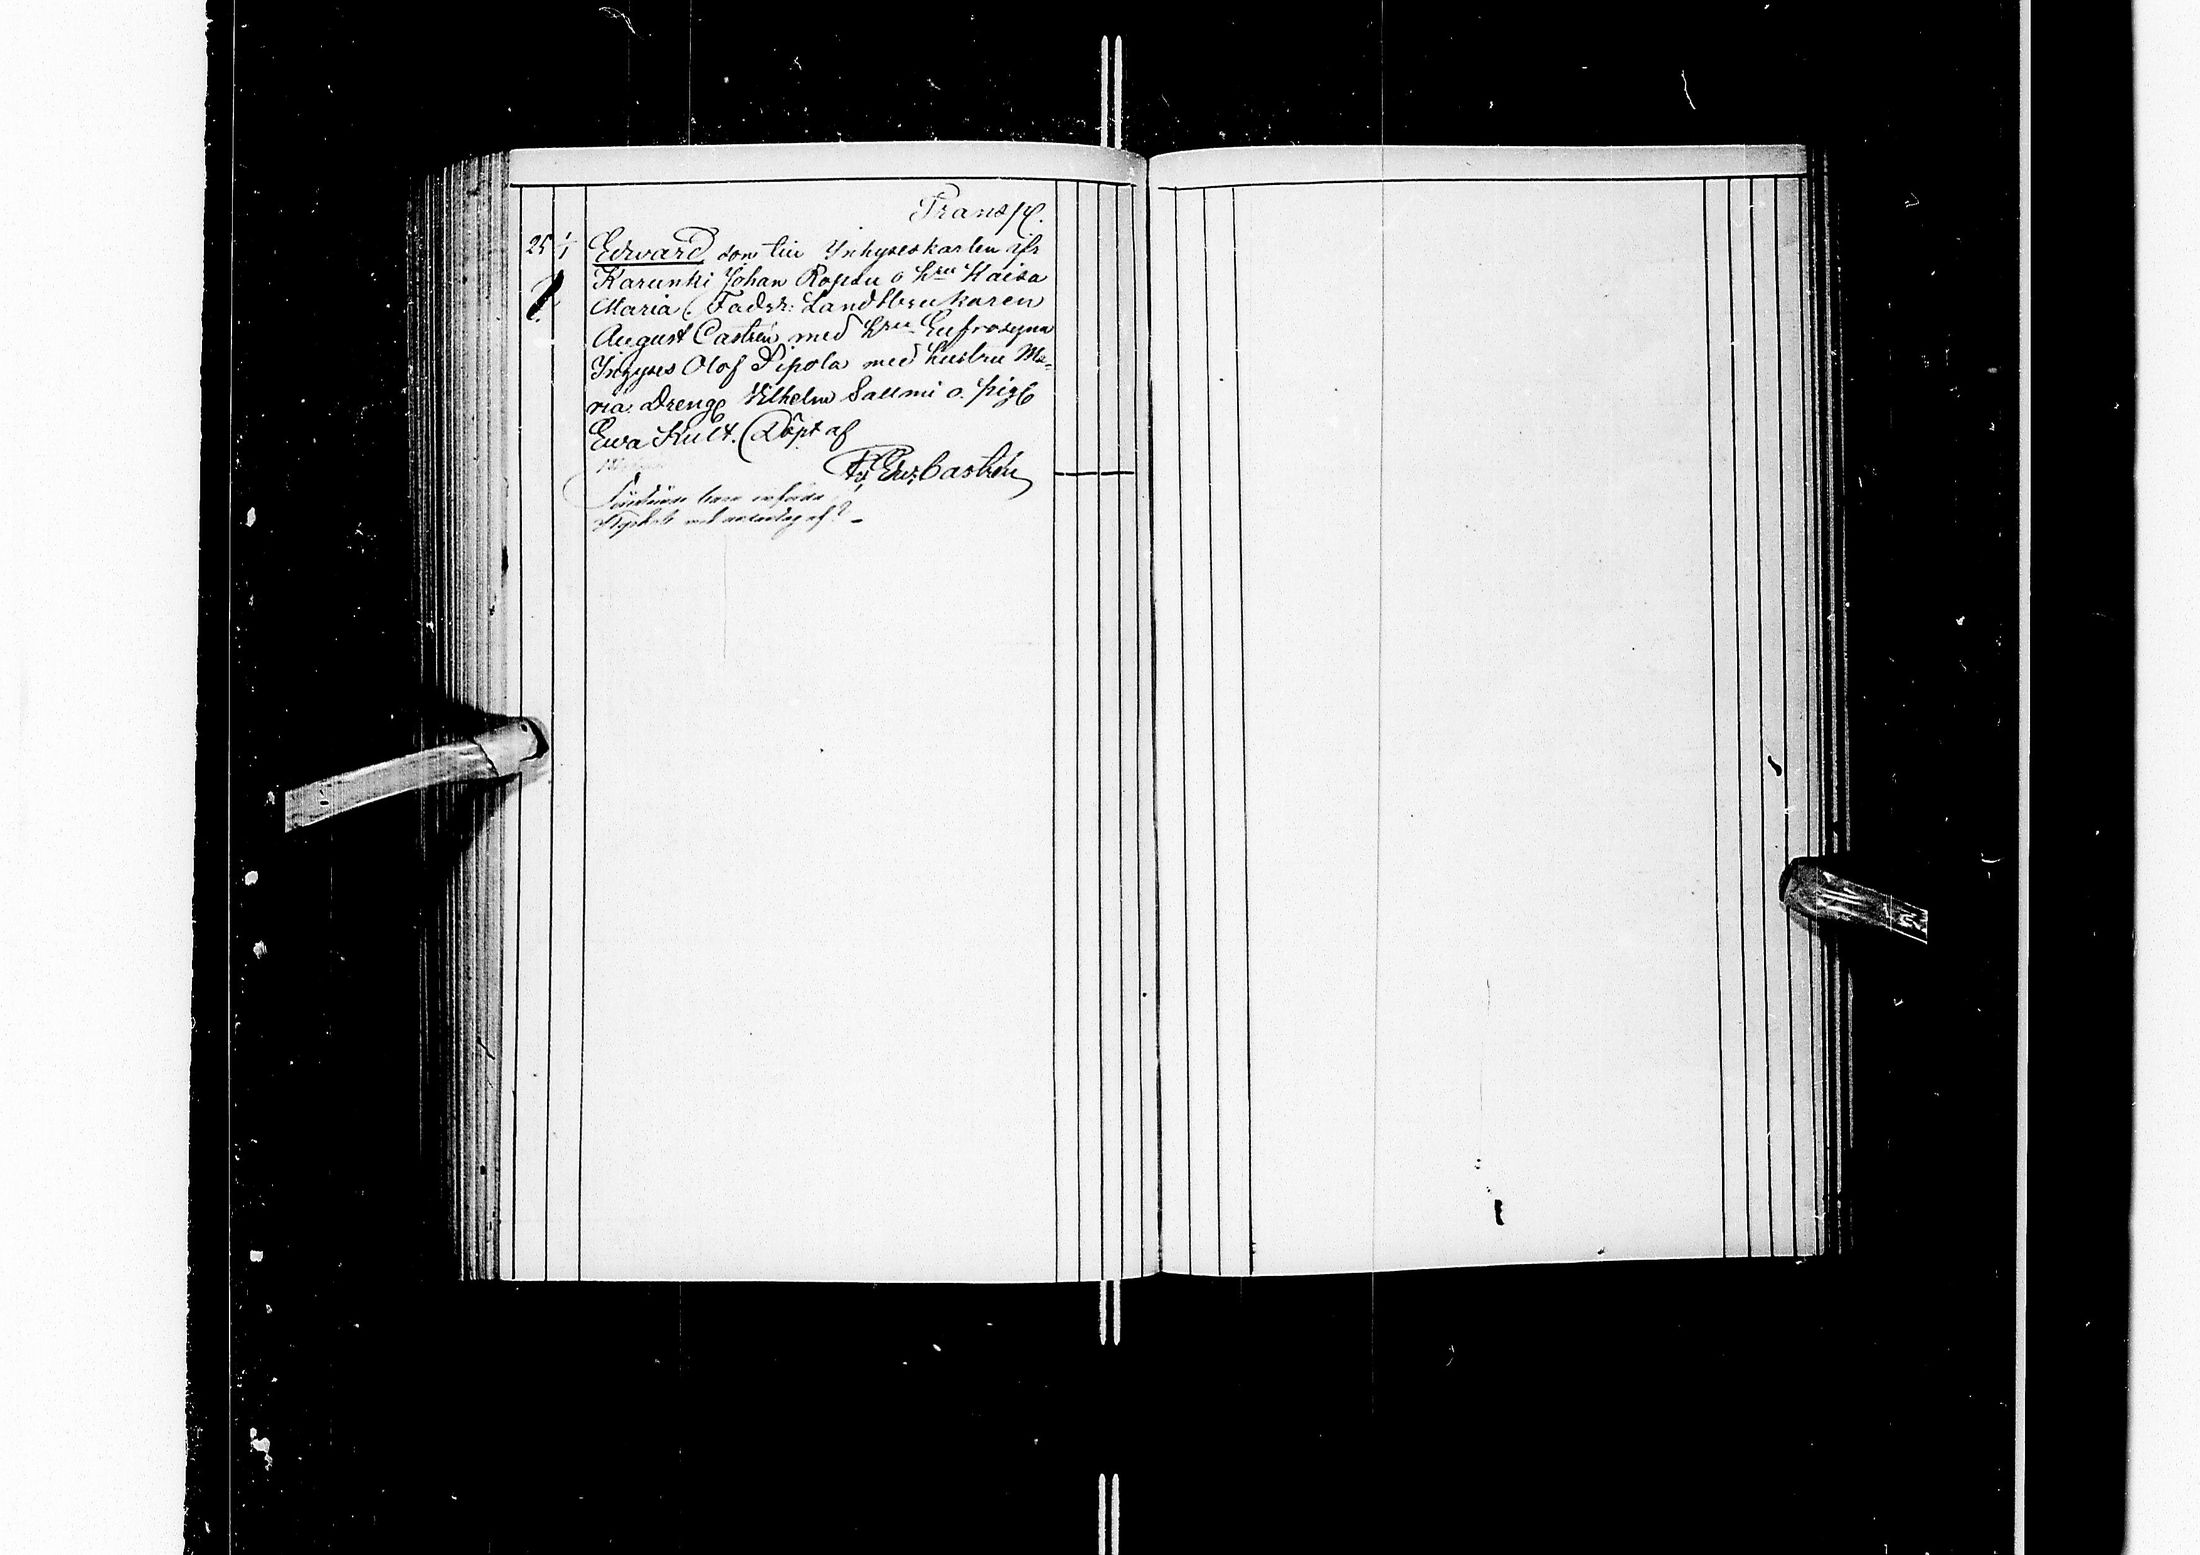 Transp.
25 1/1 Edward son till Inhyseskarlen ifr
Karunki Johan Ropsu o hru Kaisa
Maria (Faddr: Landtbrukaren
August Castrén med hru Eufrosyna
Inhyses Olof Pipola med hustru Ma-
ria. Dreng Vilhelm Salmi o. pig
Ewa Kult. (Döpt af
Edw. Castrén